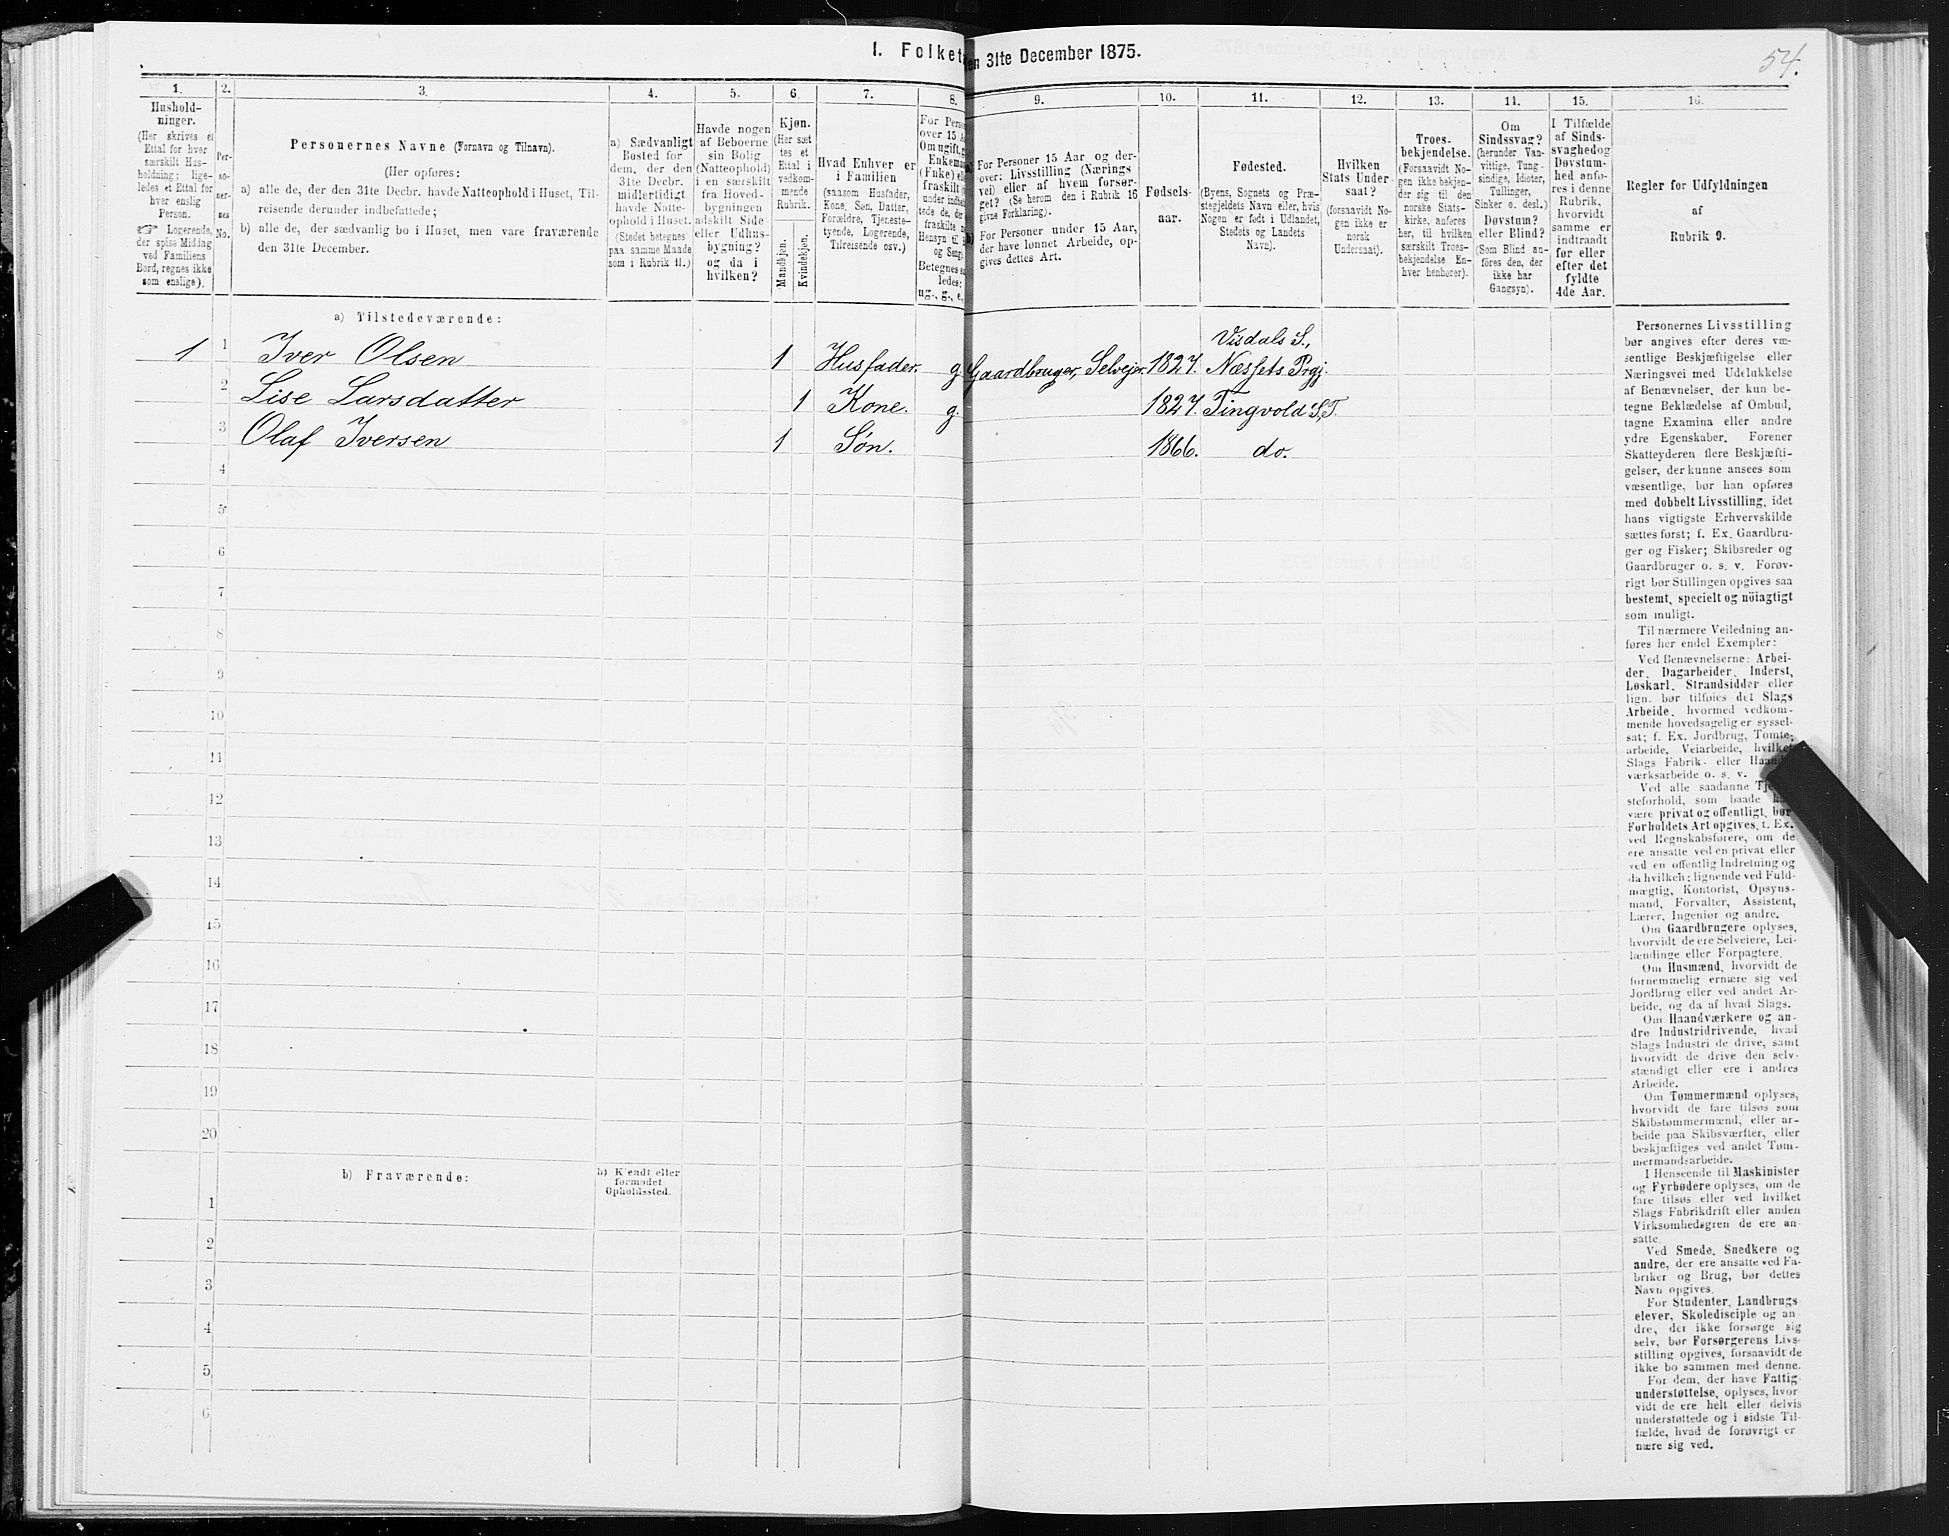 54.
1. Folket
en 31te December 1875.
1.
2.
3.
4.
5.
6.
7.
8.
9.
10.
11.
12.
13.
14.
15.
16.
Hushold-
ninger.
(Her skrives et
Ettal for hver
særskilt Hus-
holdning; lige-
ledes et Ettal for
hver enslig
Person.
☞ Logerende,
der spise Middag
ved Familiens
Bord, regnes ikke
som enslige).
Per-
so-
ner-
nes
No.
Personernes Navne (Fornavn og Tilnavn).
(Her opføres:
a) alle de, der den 31te Decbr. havde Natteophold i Huset, Til-
reisende derunder indbefattede;
b) alle de, der sædvanlig bo i Huset, men vare fraværende
den 31te December.
a) Sædvanligt
Bosted for
dem, der den
31te Decbr.
midlertidigt
havde Natte-
ophold i Huset.
(Stedet betegnes
paa samme Maade
som i Rubrik 11.)
Havde nogen
af Beboerne
sin Bolig
(Natteophold)
i en særskilt
fra Hoved-
bygningen
adskilt Side-
eller Udhus-
bygning?
og da i
hvilken?
Kjøn.
(Her sæt
tes et
Ettal i
vedkom-
mende
Rubrik.
Mandkjøn.
Kvindekjøn.
Hvad Enhver er
i Familien
(saasom Husfader,
Kone, Søn, Datter,
Forældre, Tjeneste-
tyende, Logerende,
Tilreisende osv.)
For Perso
over 15 A
Om ugift, g
Enkemand
(Enke) ell
fraskilt
under indbe
tede de, der
fraskilte m
Hensyn til
og Seng).
Betegnes s
ledes:
ug., g., e.,
For Personer 15 Aar og der-
over: Livsstilling (Nærings-
vei) eller af hvem forsør-
get? (Se herom den i Rubrik 16
givne Forklaring).
For Personer under 15 Aar,
der have lønnet Arbeide, op-
gives dettes Art.
Fødsels-
aar.
Fødested.
(Byens, Sognets og Præ-
stegjeldets Navn eller, hvis
Nogen er født i Udlandet,
Stedets og Landets
Navn).
Hvilken
Stats Under-
saat?
(forsaavidt No-
gen ikke er
norsk
Undersaat).
Troes-
bekjendelse.
(Forsaavidt No-
gen ikke bekjen-
der sig til den
norske Stats-
kirke, anføres
her, til hvilken
særskilt Troes-
bekjendelse En-
hver henhører).
Om
Sindssvag?
(herunder Van-
vittige, Tung-
sindige, Idioter,
Tullinger,
Sinker o. desl.)
Døvstum?
eller Blind?
(Som Blind an-
føres den, der
ikke har
Gangsyn).
I Tilfælde
af Sinds-
svaghed og
Døvstum-
hed anfø-
res i denne
Rubrik,
hvorvidt
samme er
indtraadt
før eller
efter det
fyldte
4de Aar.
Regler for Udfyldningen
af
Rubrik 9.
a) Tilstedeværende:
1 1 Iver Olsen 1 Husfader. g Gaardbruger, Selvejer. 1827. Visdals S.,
Næssets Prgj.
2 Lise Larsdatter 1 Kone. g. 1827. Tingvold S., T.
3 Olaf Iversen 1 Søn. 1866. do.
4
5
6
7
8
9
10
11
12
13
14
15
16
17
18
19
20
b) Fraværende:
b) Kjendt eller
formodet
Opholdssted.
1
2
3
4
5
6
Personernes Livsstilling
bør angives efter deres væ-
sentlige Beskjæftigelse eller
Næringsvei med Udelukkelse
af Benævnelser, der kun be-
tegne Beklædelse af Ombud,
tagne Examina eller andre
ydre Egenskaber. Forener
Skatteyderen flere Beskjæfti-
gelser, der kunne ansees som
væsentlige, bør han opføres
med dobbelt Livsstilling, idet
hans vigtigste Erhvervskilde
sættes først; f. Ex. Gaardbru-
ger og Fisker; Skibsreder og
Gaardbruger o. s. v. Forøv-
rigt bør Stillingen opgives saa
bestemt, specielt og nöiagtigt
som muligt.
Til nærmere Veiledning an-
føres her endel Exempler:
Ved Benævnelserne: Arbei-
der, Dagarbeider, Inderst,
Løskarl, Strandsidder eller
lign. bør tilføies det Slags
Arbeide, hvormed vedkom-
mende hovedsagelig er syssel-
sat; f. Ex. Jordbrug, Tomte-
arbeide, Veiarbeide, hvilket
Slags Fabrik- eller Haand-
værksarbeide o. s. v.
Ved alle saadanne Tje
steforhold, som baade k
være privat og offentligt, bør
Forholdets Art opgives, t. Ex.
ved Regnskabsførere, om de
ere ansatte ved en privat eller
ved en offentlig Indretning og
da hvilken; lignende ved Fuld-
mægtig, Kontorist, Opsyns-
mand, Forvalter, Assistent,
Lærer, Ingeniør og andre.
Om Gaardbrugere oplyses,
hvorvidt de ere Selveiere, Lei-
lændinge eller Forpagtere.
Om Husmænd, hvorvidt de
fornemmelig ernære sig ved
Jordbrug eller ved andet Ar-
beide, og da af hvad Slags.
Om Haandværkere og an-
dre Industridrivende, hvad
Slags Industri de drive, samt
hvorvidt de drive den selv-
stændigt eller ere i andres
Arbeide.
Om Tømmermænd oplyses,
hvorvidt de fare tilsøs som
Skibstømmermænd, eller ar-
beide paa Skibsværfter, eller
beskjæftiges ved andet Tøm-
mermandsarbeide.
I Henseende til Maskinister
og Fyrbødere oplyses, om de
fare tilsøs eller ved hvilket
Slags Fabrikdrift eller anden
Virksomhedsgren de ere an-
satte.
Ved Smede, Snedkere og
andre, der ere ansatte ved Fa-
briker og Brug, bør dettes
Navn opgives.
For Studenter, Landbrugs
elever, Skoledisciple og an-
dre, der ikke forsørge sig
selv, bør Forsørgerens Livs-
stilling opgives, forsaavidt de
ikke bo sammen med denne.
For dem, der have Fattig-
understøttelse, oplyses, hvor-
vidt de ere helt eller delvis
understøttede og i sidste Til-
fælde, hvad de forøvrigt er
nære sig ved.